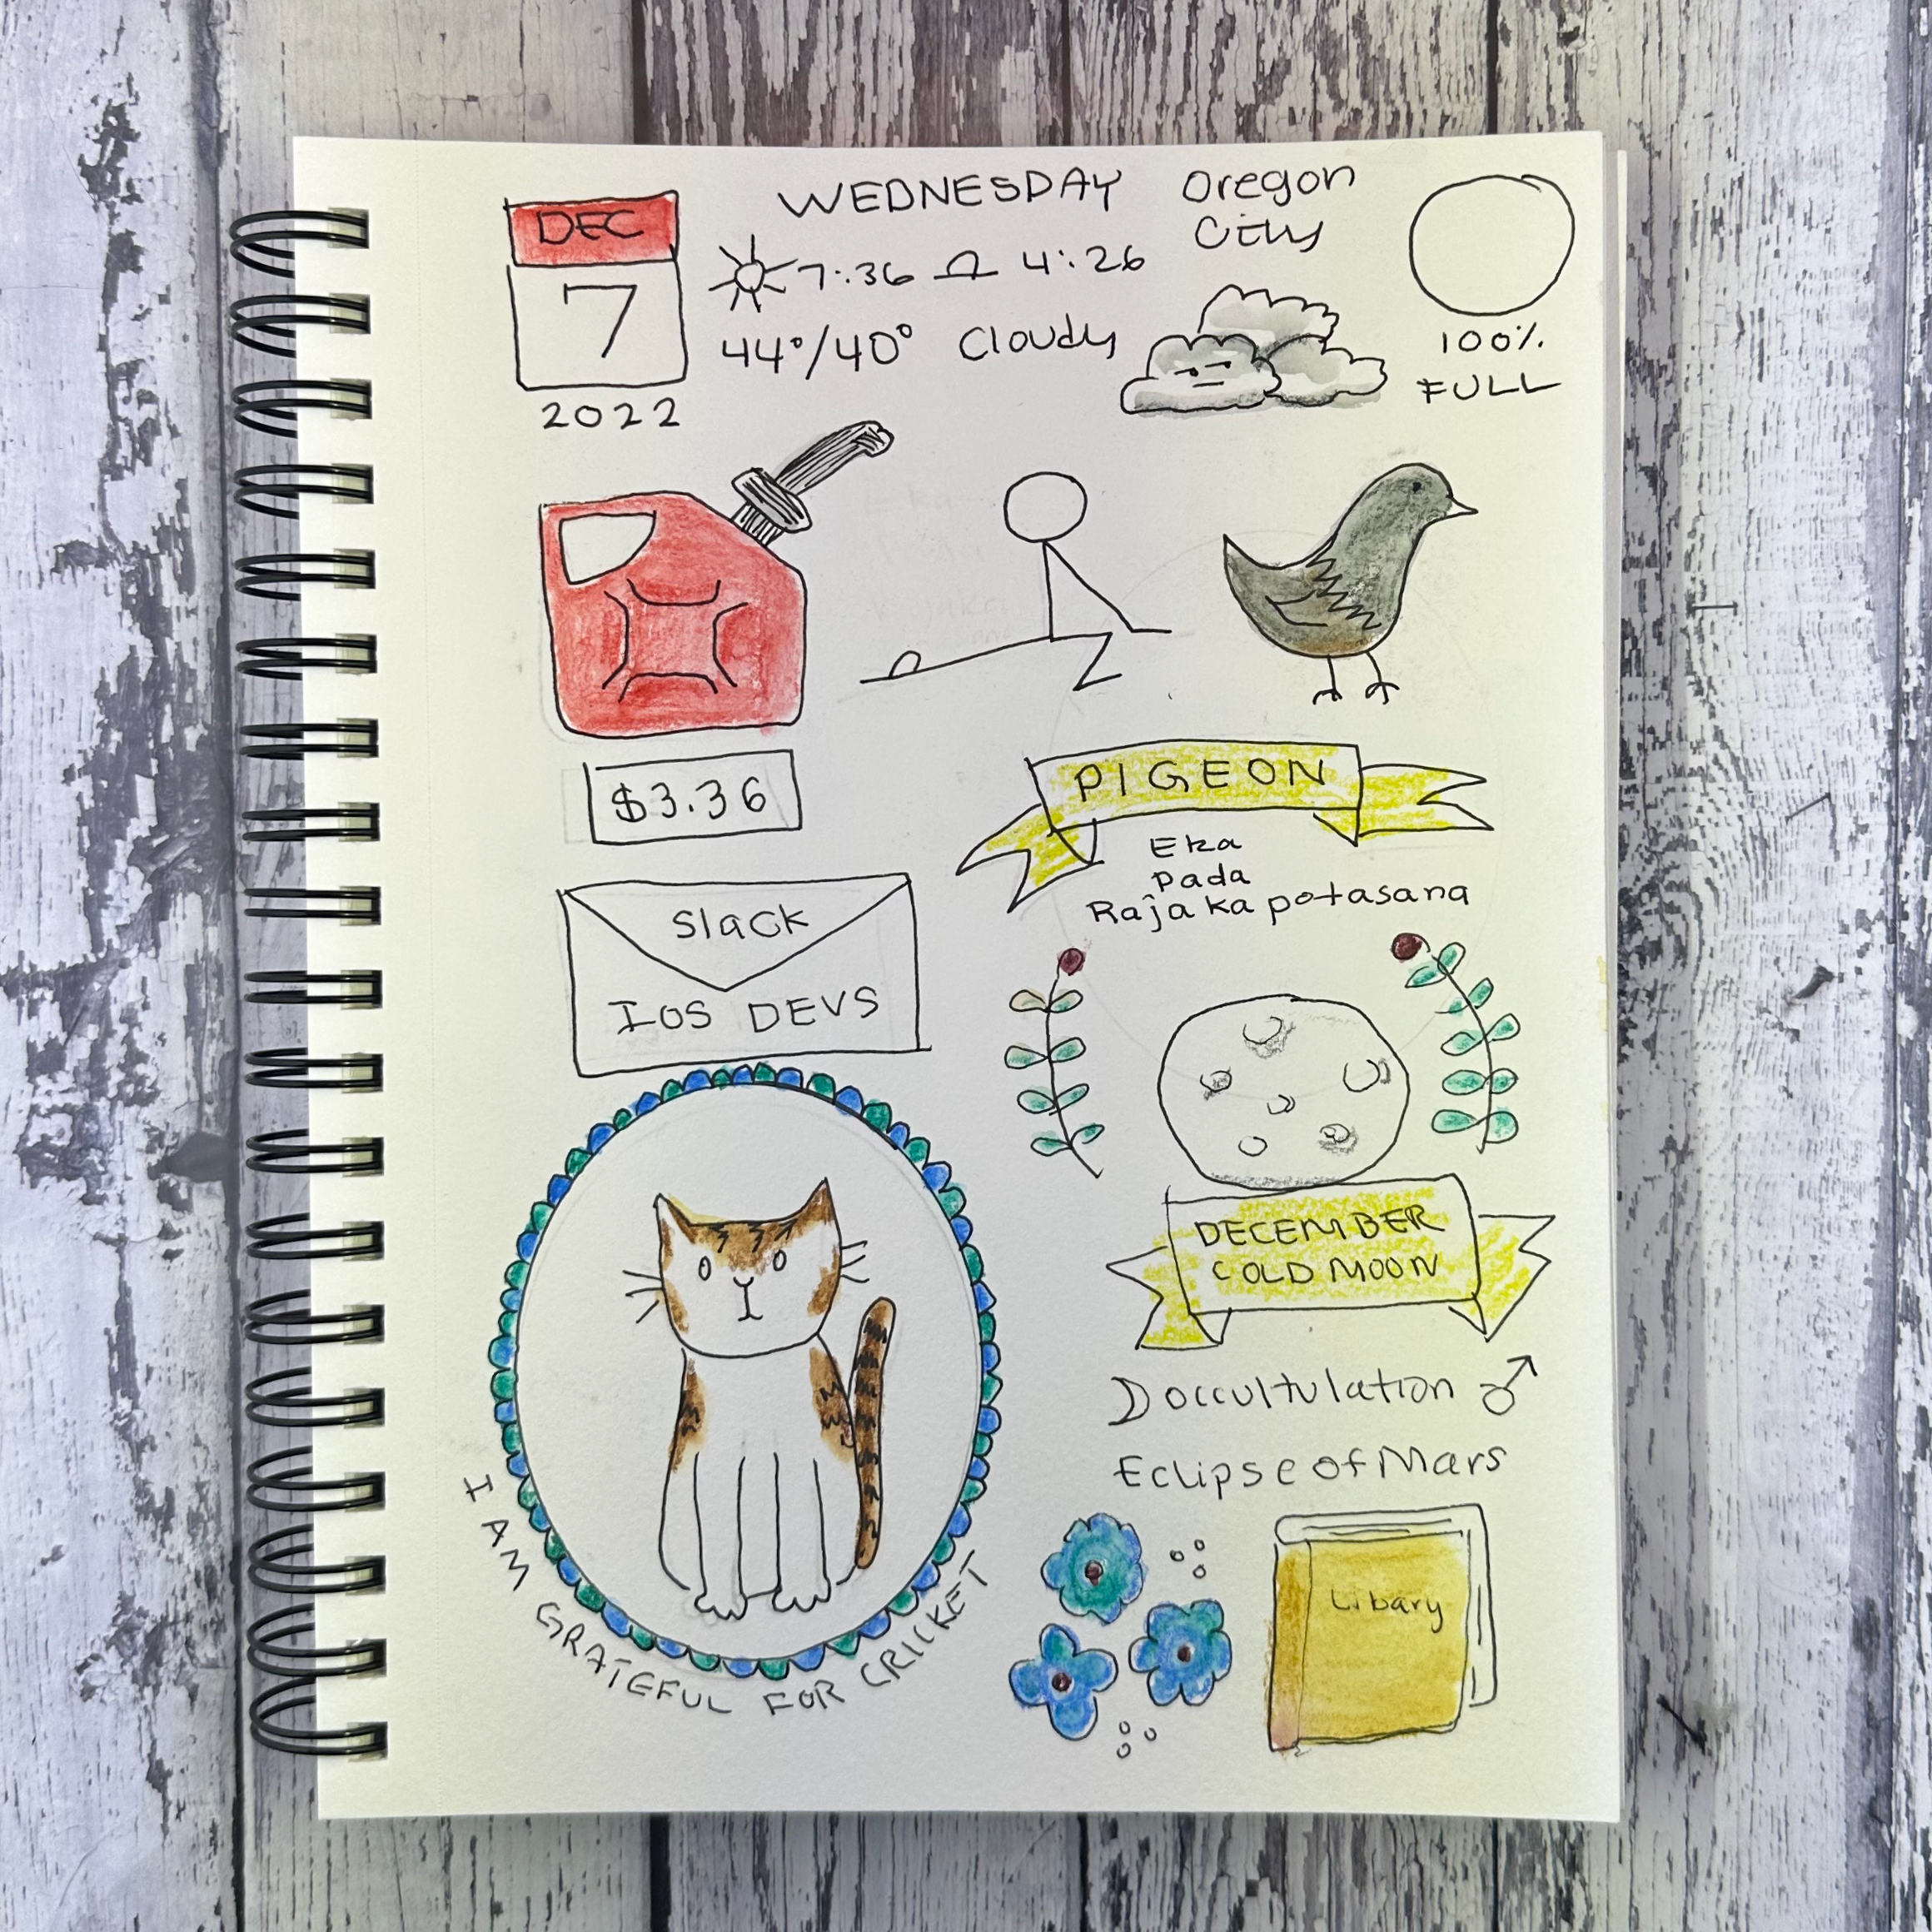 DEC
7
2022
WEDNESDAY
7:36 4:26
44°/40° Cloudy
Oregon
City
100%
FULL
$3.36
PIGEON
Eka
Pada
Rajakapotasana
Slack
IOS DEVS
DECEMBER
COLD MOON
occultulation ♂
Eclipse of Mars
I AM GRATEFUL FOR CRICKET
Libary